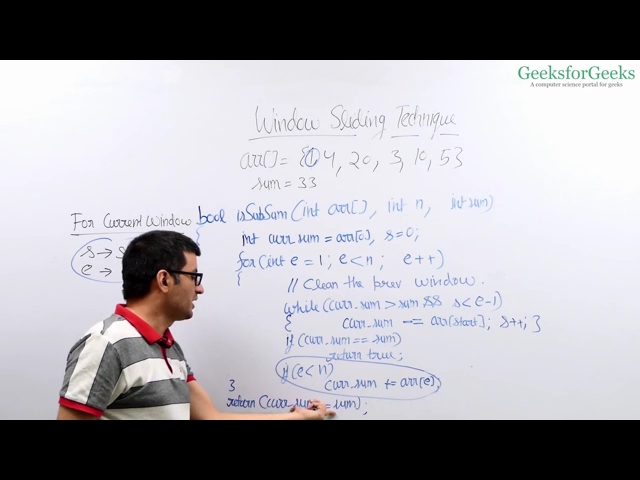 GeeksforGeeks
A computer science portal for geeks
Window Sliding Technique
arr[] = {1, 4, 20, 3, 10, 5}
sum = 33
For Current Window
s →
e →
bool isSubSum(int arr[], int n, int sum)
{
int curr_sum = arr[0], s=0;
for (int e = 1; e<n; e++)
{
// Clean the prev window.
while (curr_sum > sum && s<e-1)
{ curr_sum -= arr[start]; s++; }
if (curr_sum == sum)
return true;
if (e<n)
curr_sum += arr[e];
}
return (curr_sum == sum);